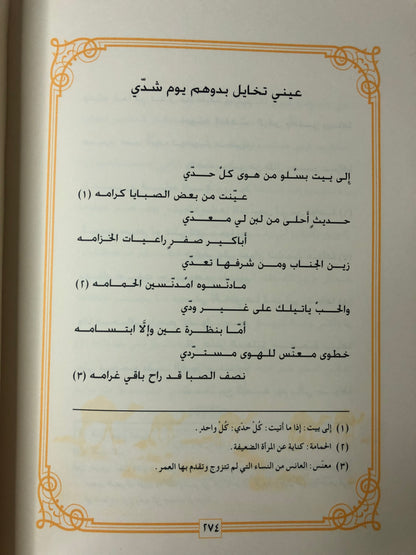 عيني تخايل بدوهم يوم شدّي
إلى بيت بسْلو من هوى كلْ حدّي
عيّنت من بعض الصبايا كرامه (١)
حديثٍ أحلى من لبن لي معـدّي
أباكير صفرٍ راعيات الخزامه
زين الجناب ومن شرفها تعدّي
مادنّسوه امْدنّسين الحمامه (٢)
والحبْ ياتيلك على غير ودّي
أمّا بنظرة عين وإلّا ابتسامه
خطوى معنّس للهوى مستردّي
نصف الصبا قد راح باقي غرامه (٣)
(١) إلى بيت: إذا ما أتيت: كُلْ حدّي: كُلْ واحدٍ.
(٢) الحمامة: كناية عن المرأة الضعيفة.
(٣) معنّس: العانس من النساء التي لم تتزوج وتقدم بها العمر.
٢٧٤